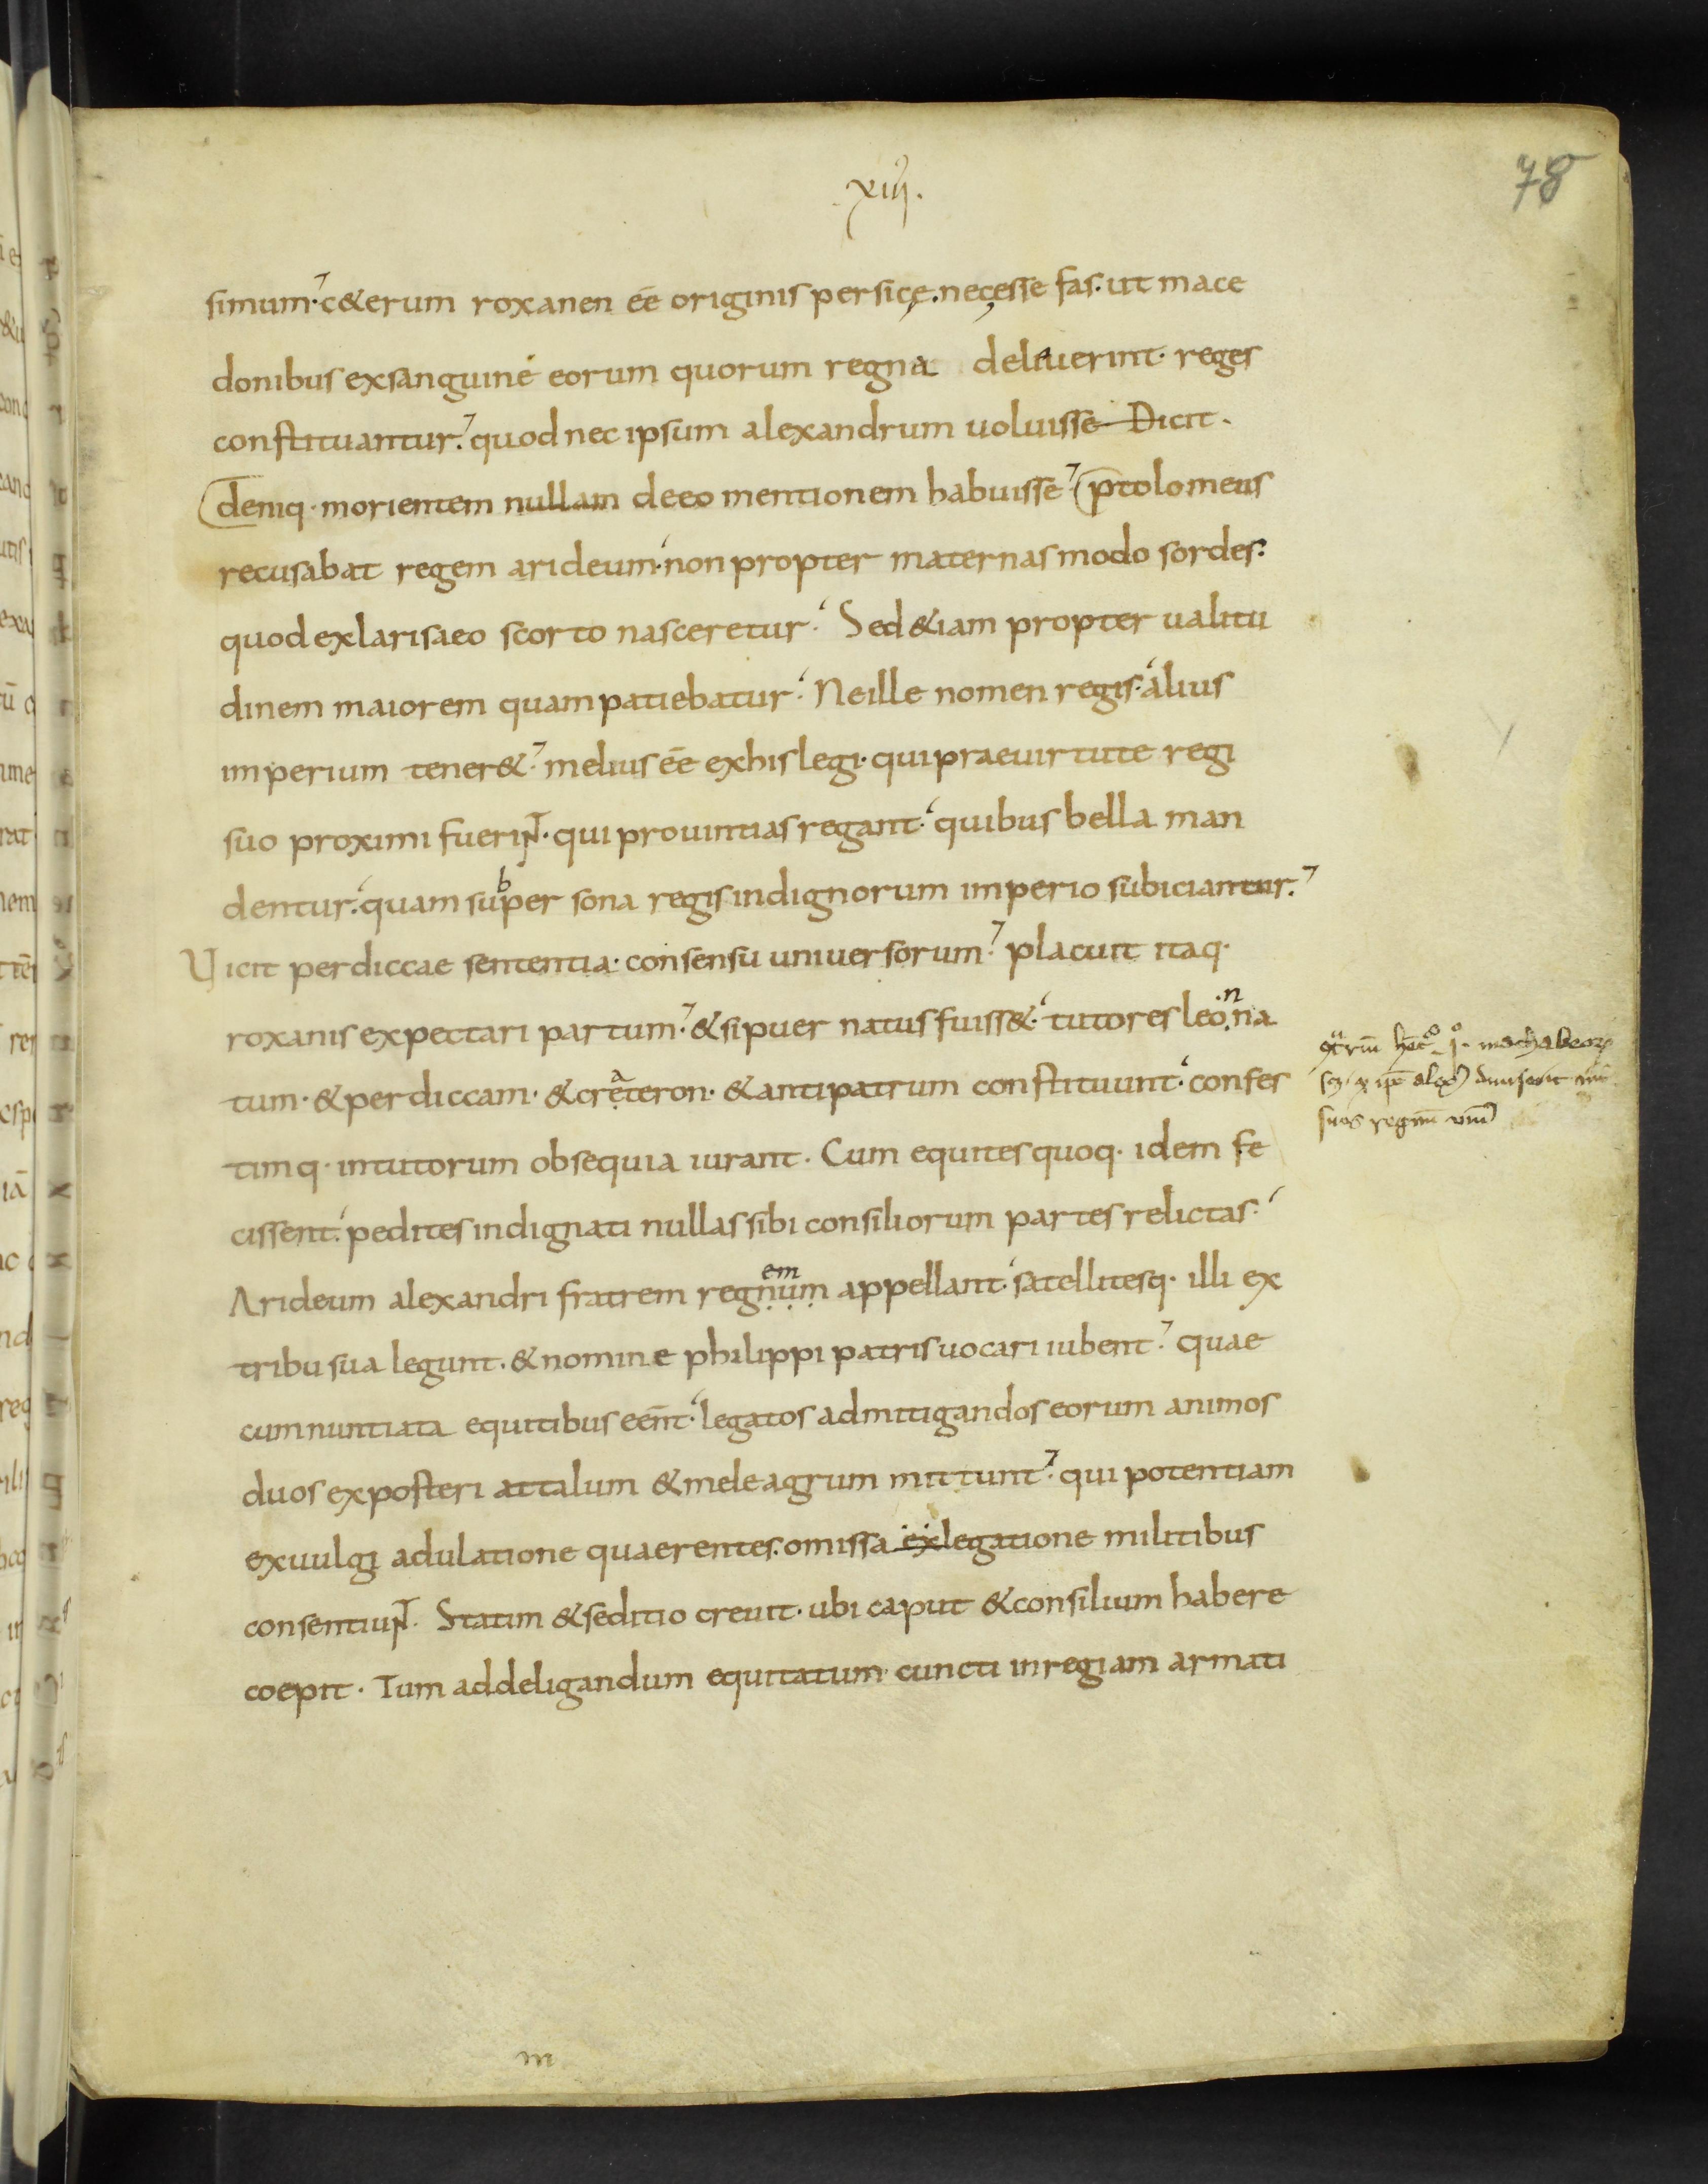 xiii.
78
simum. c&erum roxanen eē originis persicę. necesse fas. ut mace
donibus exsanguine eorum quorum regna deleuerint. reges
constituantur. quod nec ipsum alexandrum uoluisse Dicit.
deniq. morientem nullam deeo mentionem habuisse. ptolomeus
recusabat regem arideum. non propter maternas modo sordes.
quod exlarisaeo scorto nasceretur. Sed &iam propter ualitu
dinem maiorem quam patiebatur. Neille nomen regis. alius
imperium tener&. melius eē exhis legi. qui praeuirtute regi
suo proximi fuerint. qui prouintias regant. quibus bella man
dentur. quam subper sona regis indignorum imperio subiciantur.
Uicit perdiccae sententia. consensu uniuersorum. placuit itaq.
roxanis expectari partum. & sipuer natus fuiss&. tutores leonna
tum. & perdiccam. & crateron. & antipatrum constituunt. confes
timq. intutorum obsequia iurant. Cum equites quoq. idem fe
cissent. pedites indignati nullas sibi consiliorum partes relictas.
Arideum alexandri fratrem regnum em appellant. satellitesq. illi ex
tribu sua legunt. & nomine philippi patris uocari iubent. quae
cum nuntiata equitibus eēnt. legatos admitigandos eorum animos
duos exposteri attalum & meleagrum mittunt. qui potentiam
exuulgi adulatione quaerentes. omissa ex legatione militibus
consentiunt. Statim & seditio creuit. ubi caput & consilium habere
coepit. Tum addeligandum equitatum cuncti inregiam armati
machabeorum
suos regnum
m